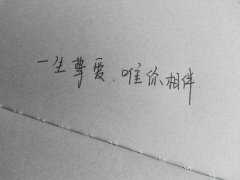 一生尊爱、唯你相伴